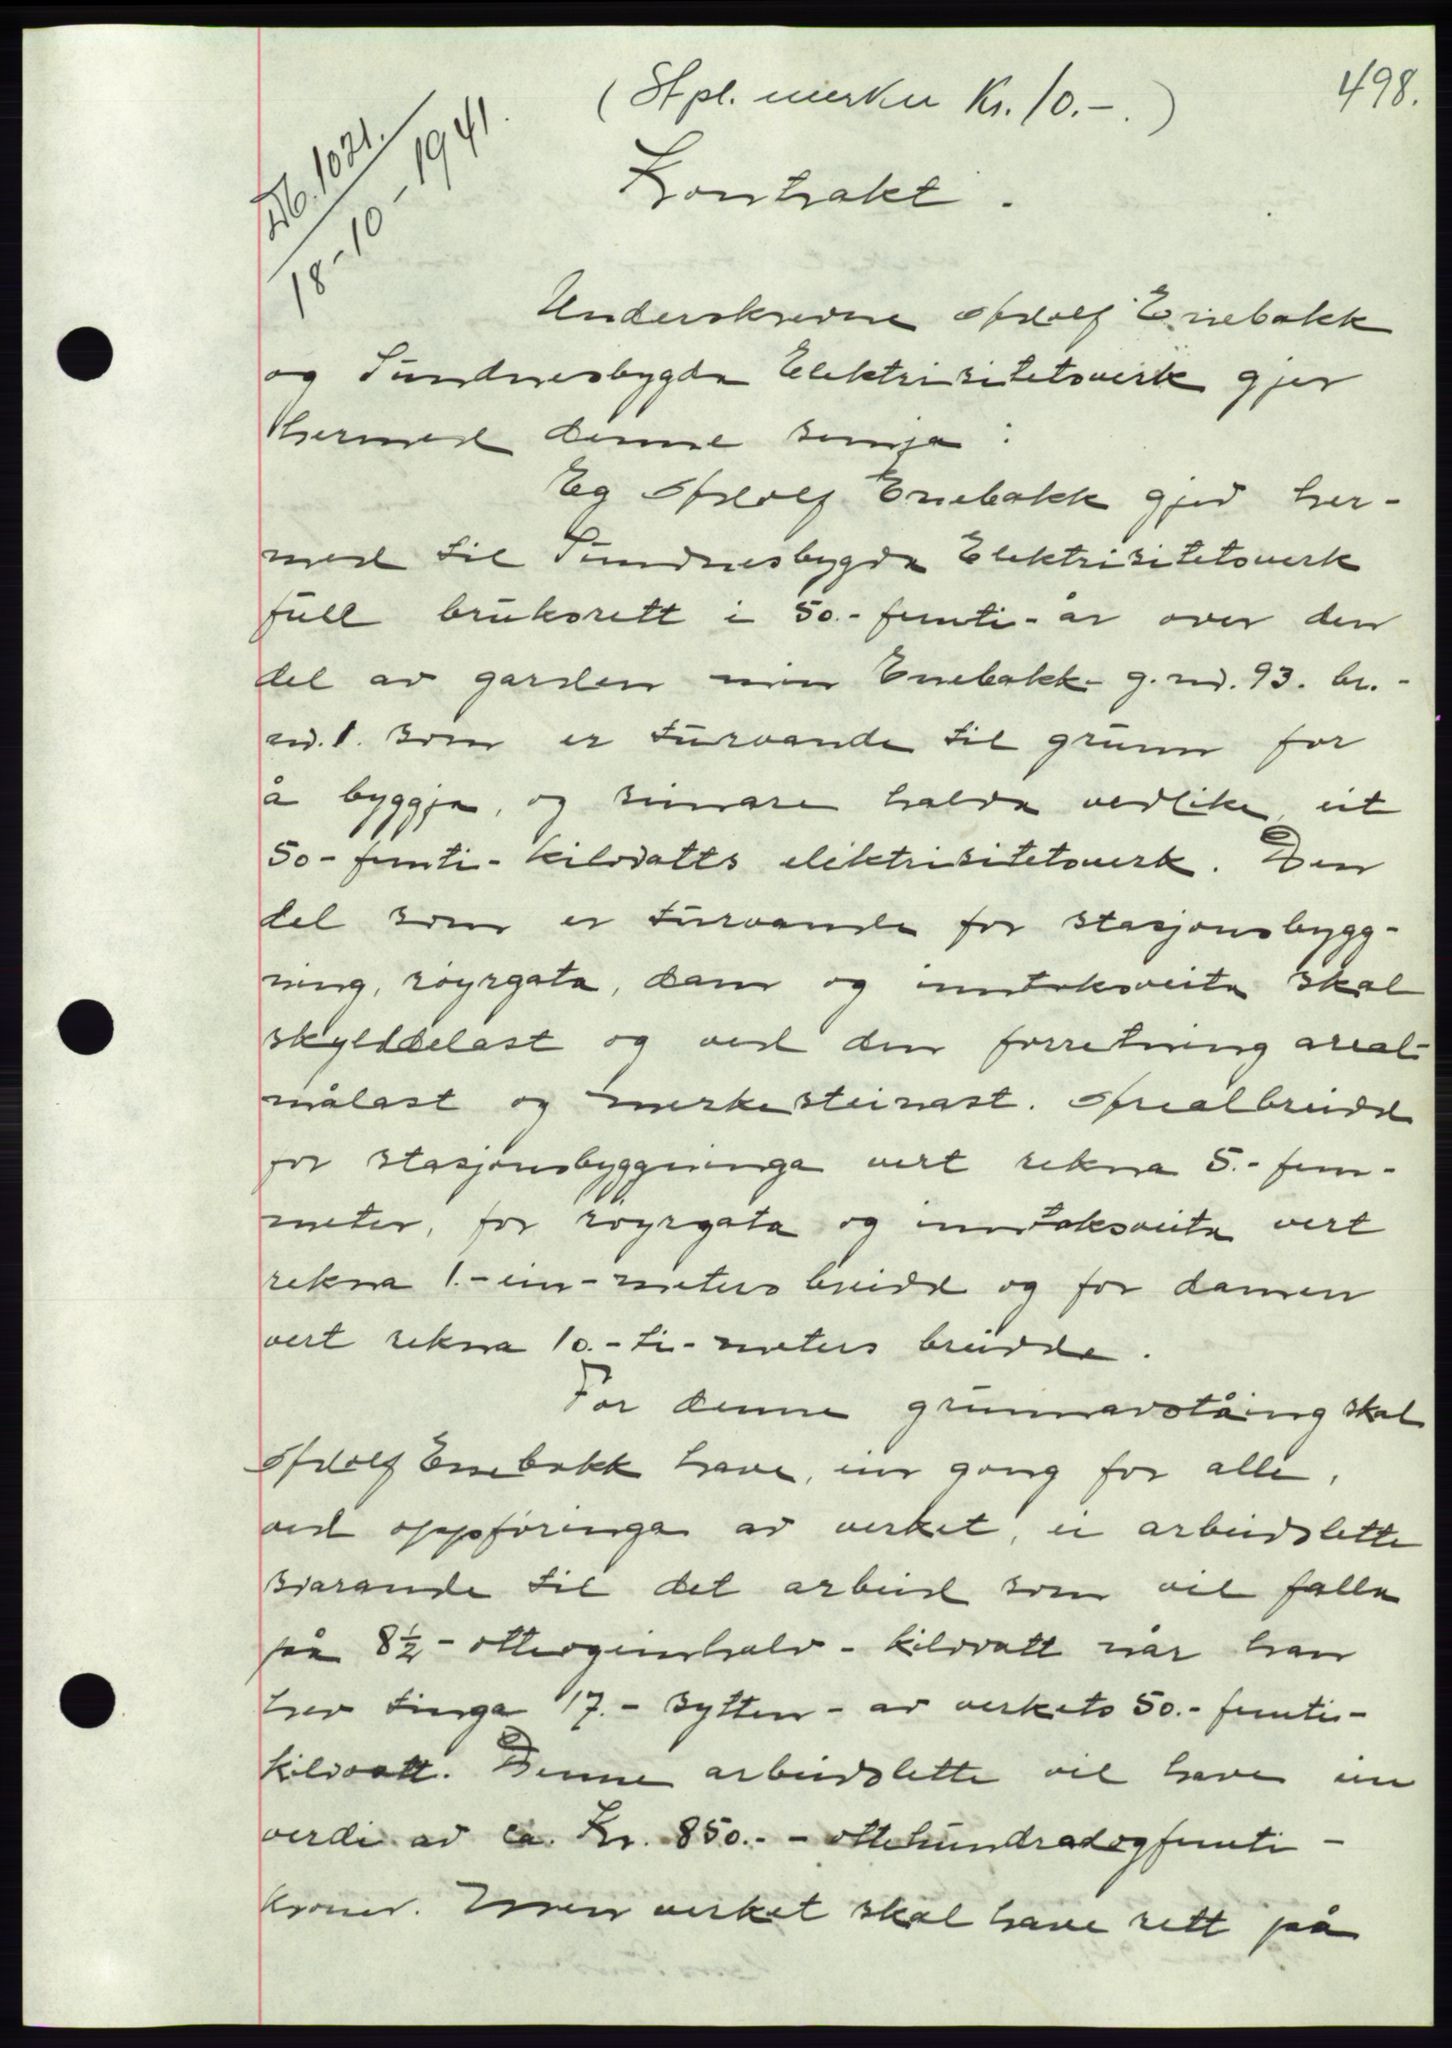 498.
(Stpl. merker Kr. 10.-.)
Db. 1021.
18-10-1941.
Kontrakt.
Underskrevne Adolf Enebakk
og Sundnesbygda Elektrisitetsverk gjer
hermed denne semja:
Eg Adolf Enebakk gjev her-
med til Sundnesbygda Elektrisitetsverk
full bruksrett i 50.- femti- år over den
del av garden min Enebakk g.nr. 93. br.-
nr. 1. som er turvande til grunn for
å byggja, og sinare halda vedlike, eit
50- femti- kilovatts elektrisitetsverk. Den
del som er turvande for stasjonsbygg-
ning, røyrgata, dam og inntaksveita skal
skylddelast og ved den forretning areal-
målast og merkesteinast. Arealbreidd
for stasjonsbyggninga vert rekna 5.- fem-
meter, for røyrgata og inntaksveita vert
rekna 1.- ein- meters breidd og for dammen
vert rekna 10.- ti- meters breidde.
For denne grunnavståing skal
Adolf Enebakk have, ein gong for alle,
ved oppføringa av verket, ei arbeidslette
svarande til det arbeid som vil falla
på 8½ - otteogeinhalv - kilovatt når han
hev tinga 17.- sytten - av verkets 50.- femti-
kilovatt. Denne arbeidslette vil have ein
verdi av ca. Kr. 850.- - ottehundradogfemti -
kroner. Men verket skal have rett på